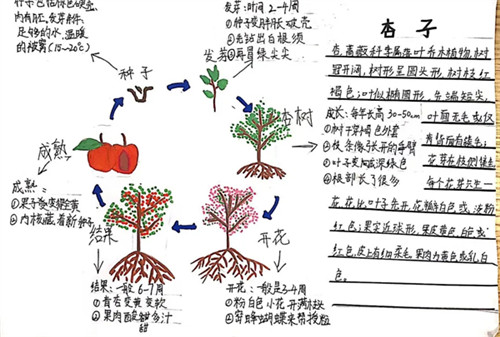 内有胚,发芽条件:
足够的水,温暖
的披雾(15~20℃)
种子
发芽:时间2-4周
①种子变胖胀破壳
②先钻出白根须
③再冒绿尖尖
发芽
杏树
成长:每年长高30-50cm
①树干穿褐色外套
②枝条像张开的手臂
③叶子变成深绿色
④根部长了很多
开花
开花:一般是3-4周
①粉白色小花开满枝头
②蜜蜂蝴蝶来帮授粉
结果
结果:一般6-7周
①青杏变黄变软
②果肉酸甜多汁
甜
成熟
成熟:
①果子变橙黄
②内核藏着新种子
杏子
杏,蔷薇科李属落叶乔木植物,树
冠开阔,树形呈圆头形,树枝红
褐色;叶似椭圆形,先端短尖,
叶面无毛或仅
背脉间有疏毛;
花芽在枝侧簇生
每个花芽只生一
花,花比叶子先开,花瓣白色或淡粉
红色;果实近球形,果皮黄色、白色或
红色,皮上有细柔毛,果肉为黄色或乳白
色。